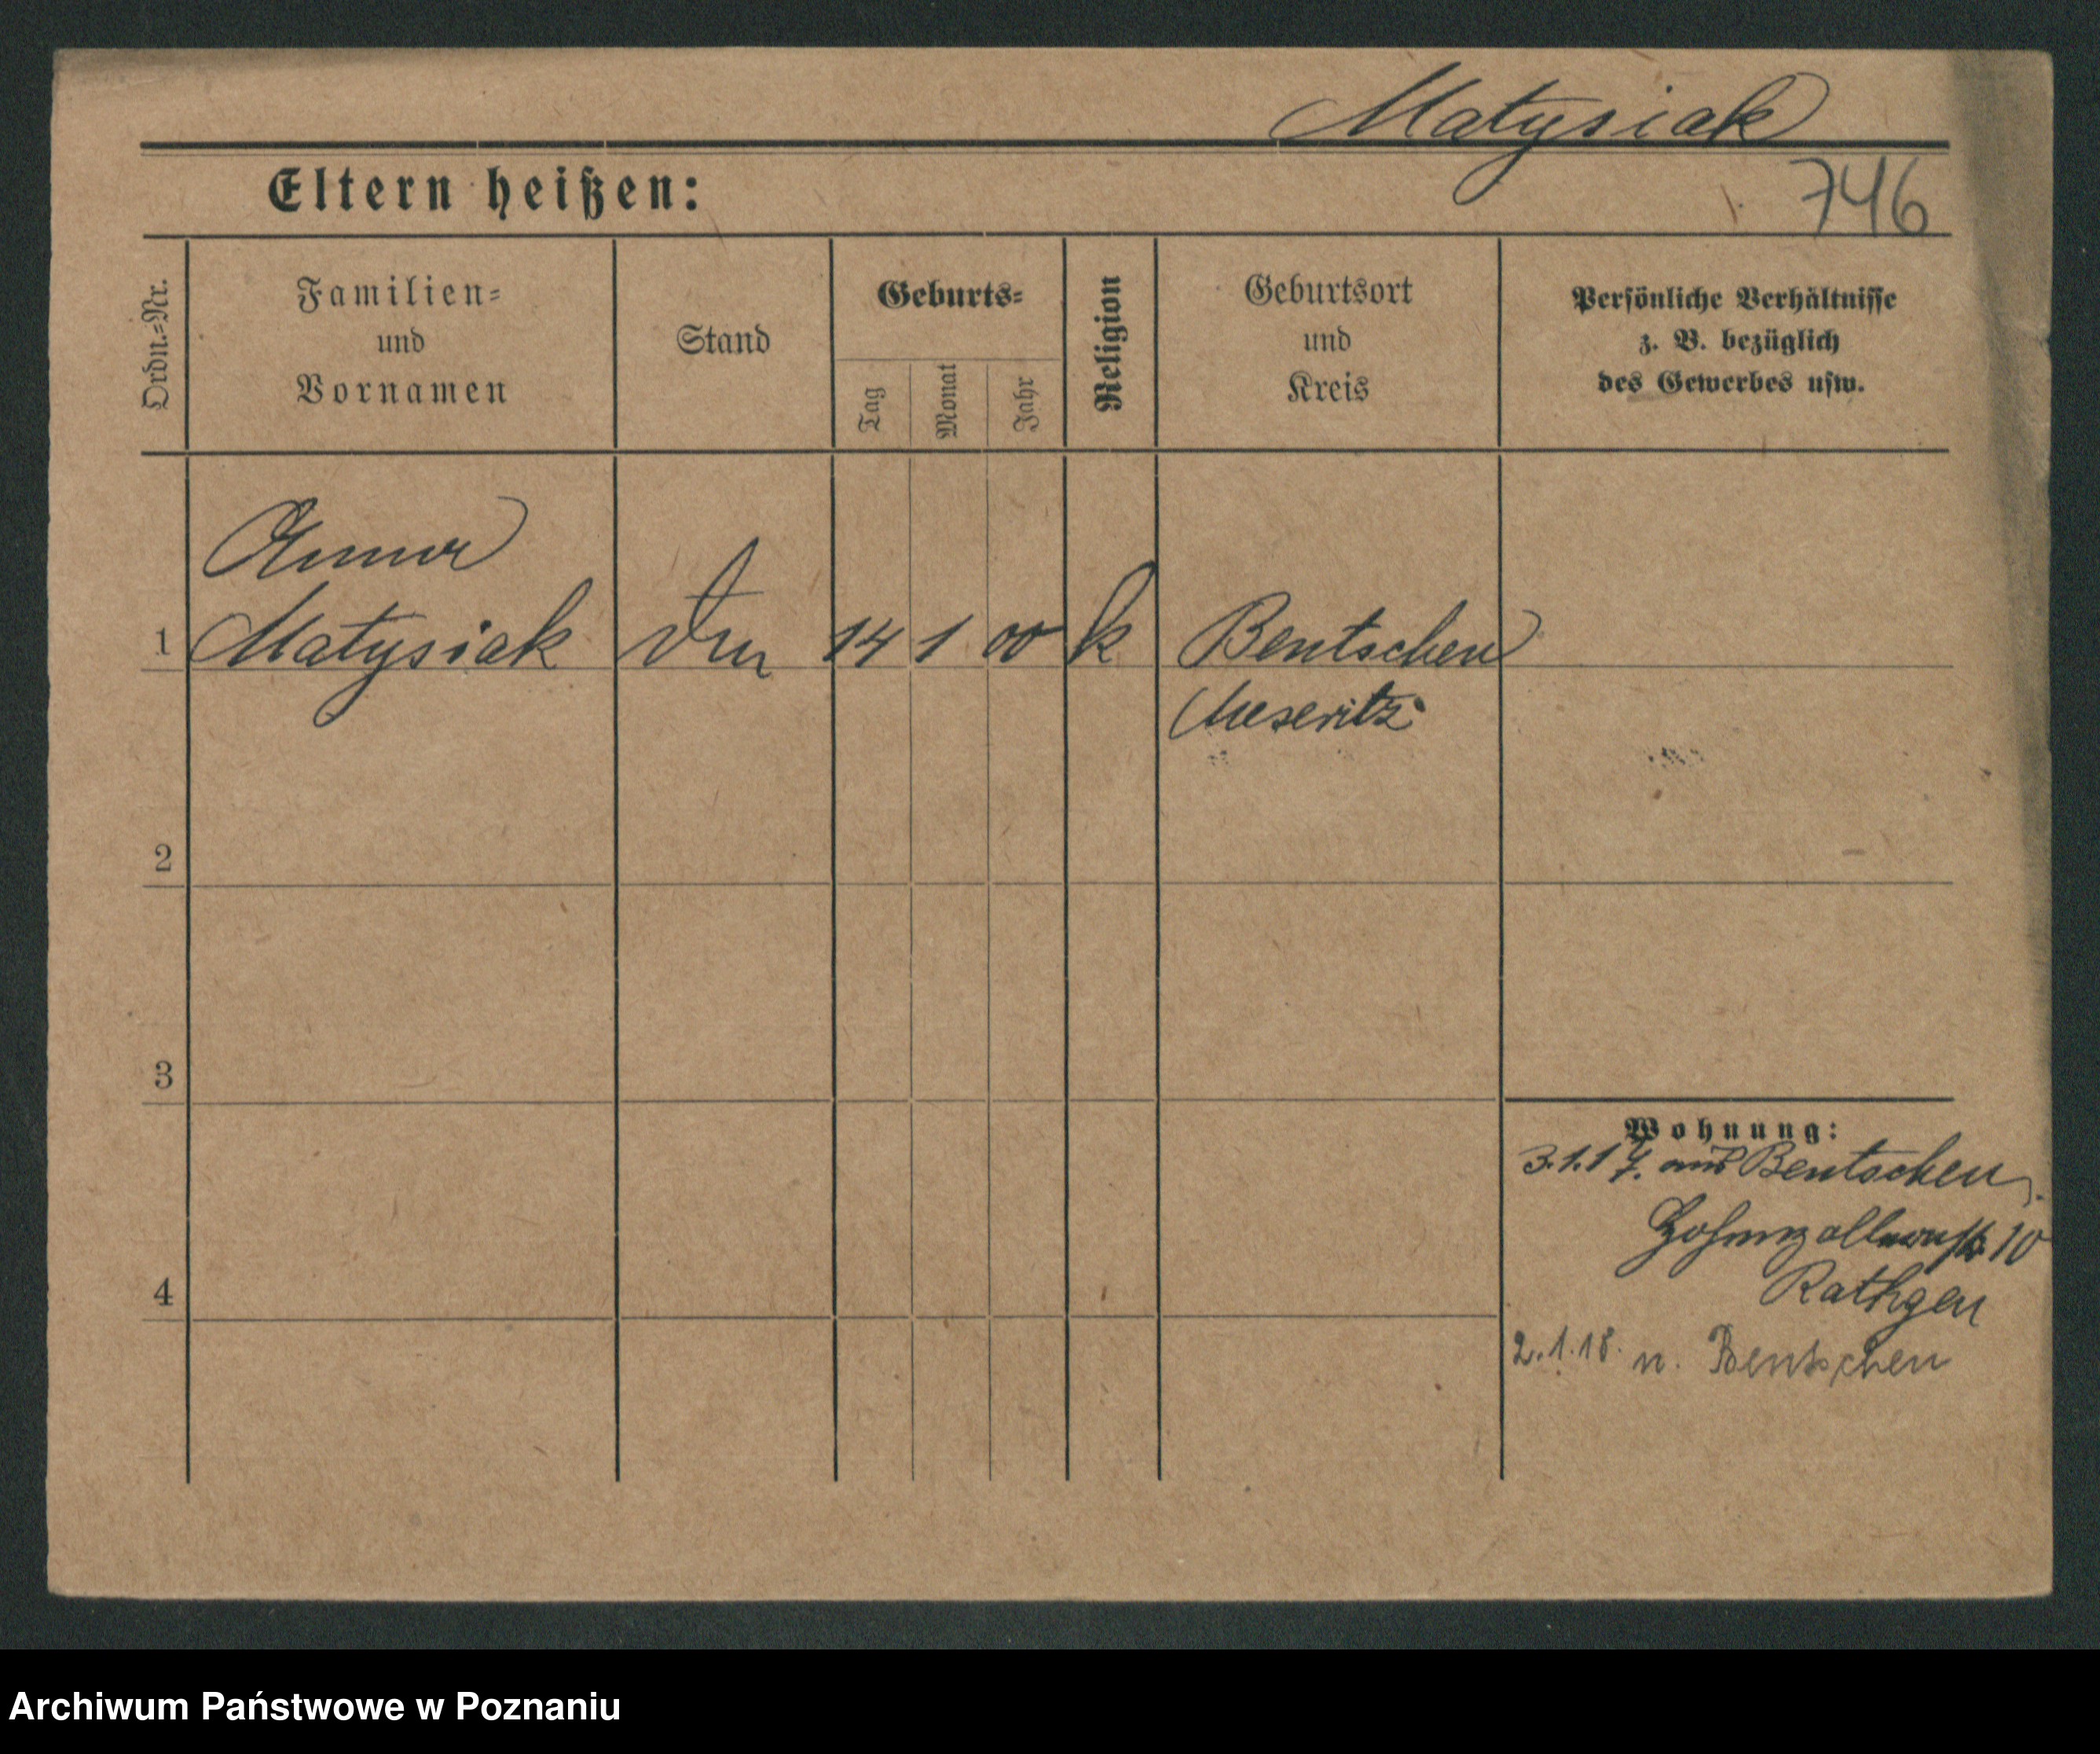 Matysiak
746
Eltern heißen:
Ordn.-Nr.
Familien-
und
Vornamen
Stand
Geburts-
Tag
Monat
Jahr
Religion
Geburtsort
und
Kreis
Persönliche Verhältnisse
z. B. bezüglich
des Gewerbes usw.
Anna
1 Matysiak 14 1 00 k Bentschen
Meseritz
2
3
4
Wohnung:
3.1.17. aus Bentschen
Hohenzollernstr. 10
Rathgen
2.1.18. n. Bentschen
Archiwum Państwowe w Poznaniu